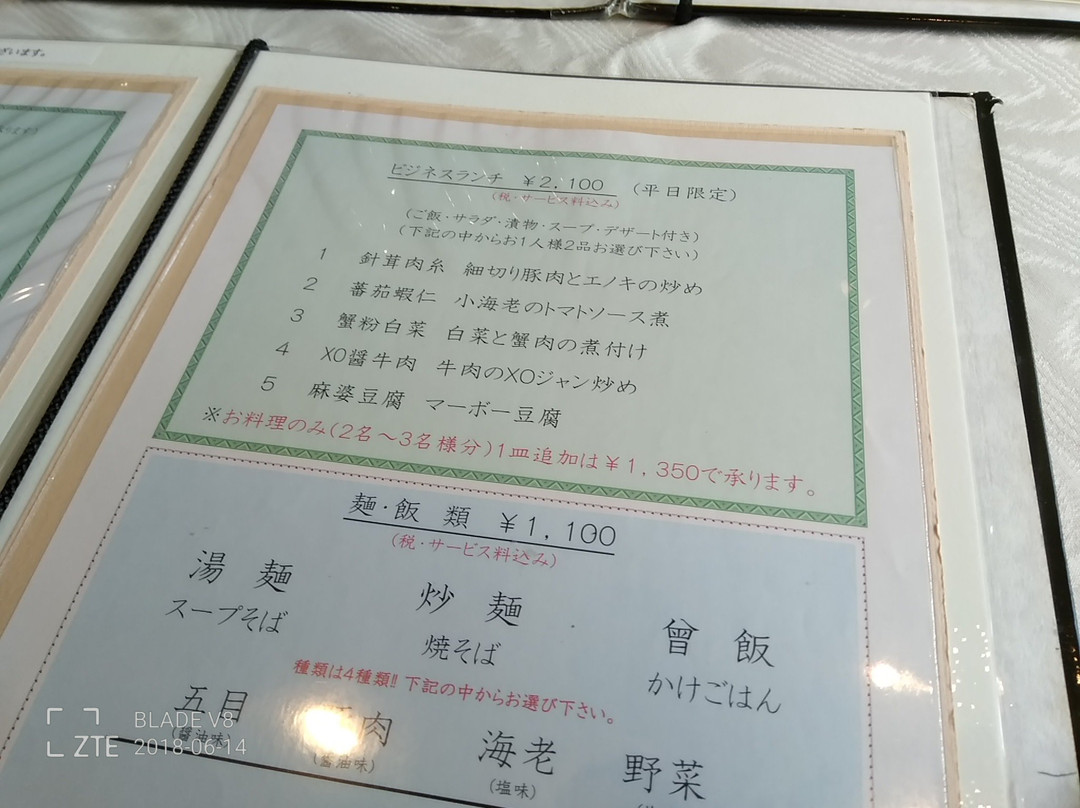 ざいます。
ビジネスランチ ￥2,100 (平日限定)
(税・サービス料込み)
(ご飯・サラダ・漬物・スープ・デザート付き)
(下記の中からお1人様2品お選び下さい)
1 針茸肉糸 細切り豚肉とエノキの炒め
2 蕃茄蝦仁 小海老のトマトソース煮
3 蟹粉白菜 白菜と蟹肉の煮付け
4 XO醤牛肉 牛肉のXOジャン炒め
5 麻婆豆腐 マーボー豆腐
※お料理のみ(2名～3名様分)1皿追加は￥1,350で承ります。
麺・飯 類 ￥1,100
(税・サービス料込み)
湯 麺 炒 麺 曾 飯
スープそば 焼そば かけごはん
種類は4種類!! 下記の中からお選び下さい。
五目 肉 海老 野菜
(醤油味) (醤油味) (塩味)
BLADE V8
ZTE 2018-06-14